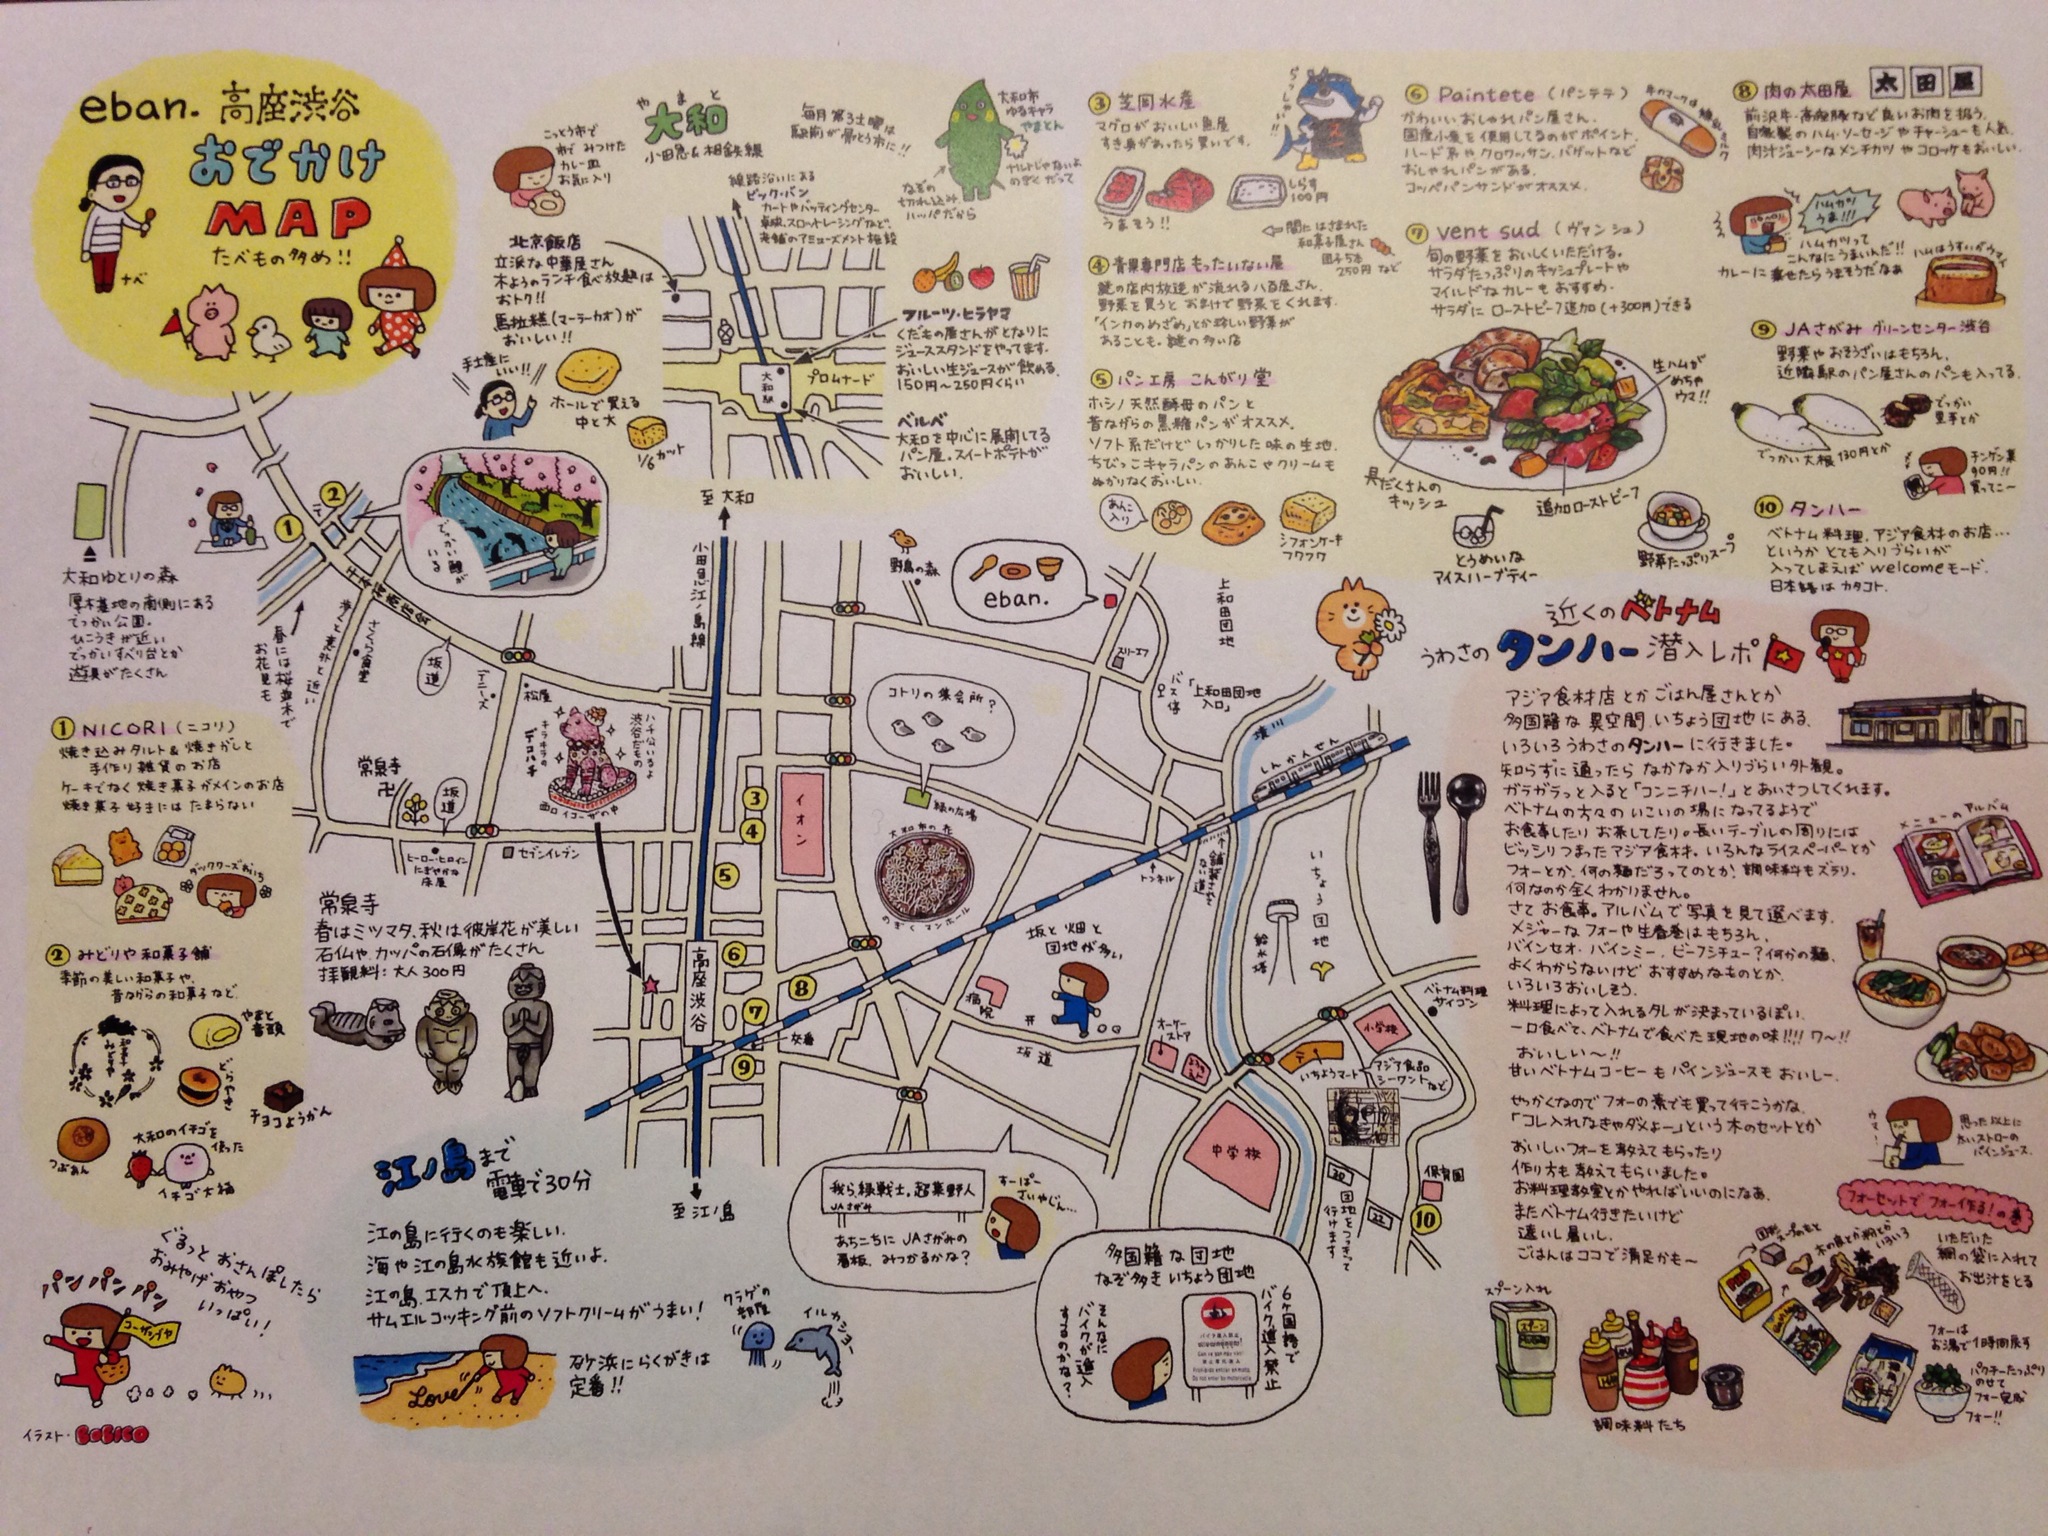 eban. 高座渋谷
おでかけ
MAP
たべもの多め!!
ナベ
やまと
大和
小田急&相鉄線
毎月第3土曜は
駅前が骨とう市に!!
こっとう市で
みつけた
カレー皿
お気に入り
大和市
ゆるキャラ
やまとん
なぞの
切れ込み
ハッパだから
線路沿いにある
ビック・バン
カートやバッティングセンター
卓球、スロットレーシングなど、
老舗のアミューズメント施設
北京飯店
立派な中華屋さん
木ようのランチ食べ放題は
おトク!!
馬拉糕(マーラーカオ)が
おいしい!!
手土産に
いい!!
ホールで買える
中と大
1/6カット
フルーツ・ヒラヤマ
くだもの屋さんがとなりに
ジューススタンドをやってます。
おいしい生ジュースが飲める。
150円~250円くらい
プロムナード
大和駅
ベルベ
大和を中心に展開してる
パン屋。スイートポテトが
おいしい。
③ 芝岡水産
マグロがおいしい魚屋
すき身があったら買いです。
らっしゃい!!
うまそう!!
しらす
100円
間にはさまれた
和菓子屋さん
団子5本
250円など
④ 青果専門店 もったいない屋
謎の店内放送が流れる八百屋さん。
野菜を買うとおまけで野菜をくれます。
「インカのめざめ」とか珍しい野菜が
あることも。謎の多い店
⑤ パン工房 こんがり堂
ホシノ天然酵母のパンと
昔ながらの黒糖パンがオススメ。
ソフト系だけどしっかりした味の生地。
ちびっこキャラパンのあんこやクリームも
ぬかりなくおいしい。
あんこ
入り
シフォンケーキ
フワフワ
⑥ Paintete (パンテテ)
かわいいおしゃれパン屋さん。
国産小麦を使用してるのがポイント。
ハード系やクロワッサン、バゲットなど
おしゃれパンがある。
コッペパンサンドがオススメ。
牛のマークは
練乳ミルク
⑦ vent sud (ヴァン シュ)
旬の野菜をおいしくいただける。
サラダたっぷりのキッシュプレートや
マイルドなカレーもおすすめ。
サラダにローストビーフ追加(+300円)できる
生ハムが
めちゃ
ウマ!!
具だくさんの
キッシュ
追加ローストビーフ
とうめいな
アイスハーブティー
野菜たっぷりスープ
⑧ 肉の太田屋
太田屋
前沢牛・高座豚など良いお肉を扱う。
自家製のハム・ソーセージやチャーシューも人気。
肉汁ジューシーなメンチカツやコロッケもおいしい。
ハムカツ
うま!!!
ハムカツって
こんなにうまいんだ!!
カレーに乗せたらうまそうだなぁ
ハムはうすいがウマイ
⑨ JAさがみ グリーンセンター渋谷
野菜やおそうざいはもちろん、
近隣駅のパン屋さんのパンも入ってる。
でっかい
里芋とか
でっかい大根130円とか
チンゲン菜
90円!!
買ってこ~
⑩ タンハー
ベトナム料理、アジア食材のお店…
というかとても入りづらいが
入ってしまえばwelcomeモード。
日本語はカタコト。
大和ゆとりの森
厚木基地の南側にある
でっかい公園。
ひこうきが近い
でっかいすべり台とか
遊具がたくさん
でっかい鯉が
いる
千本桜商店会
春には桜並木で
お花見も
歩くと意外と近い
さくら食堂
坂道
デニーズ
松屋
① NICORI (ニコリ)
焼き込みタルト&焼きがしと
手作り雑貨のお店
ケーキでなく焼き菓子がメインのお店
焼き菓子好きにはたまらない
② みどりや 和菓子舗
季節の美しい和菓子や、
昔ながらの和菓子など。
和菓子 みどりや
やまと
音頭
どらやき
チョコようかん
つぶあん
大和のイチゴを
使った
イチゴ大福
常泉寺
坂道
ヒーロー・ヒロイン
にぎやかな
床屋
セブンイレブン
ハチ公いるよ
渋谷だもの
キラキラの
デコハチ
西口 イコーザの中
常泉寺
春はミツマタ、秋は彼岸花が美しい
石仏や、カッパの石像がたくさん
拝観料:大人300円
至大和
小田急江ノ島線
高座渋谷
至江ノ島
イオン
野鳥の森
eban.
スリーエフ
バス停
「上和田団地入口」
上和田団地
コトリの集会所?
緑の広場
大和市の花
のぎくマンホール
境川
しんかんせん
トンネル
舗装されてない道
いちょう団地
給水塔
坂と畑と
団地が多い
病院
坂道
交番
オーケー
ストア
小学校
ベトナム料理
サイゴン
いちょうマート
アジア食品
シーワントなど
中学校
団地をつっきって
行けます
保育園
20
22
⑩
江ノ島まで
電車で30分
江の島に行くのも楽しい。
海や江の島水族館も近いよ。
江の島、エスカで頂上へ。
サムエルコッキング前のソフトクリームがうまい!
Love
砂浜にらくがきは
定番!!
クラゲの
部屋
イルカショー
我ら緑戦士。超菜野人
JAさがみ
すーぱー
さいやじん…
あちこちにJAさがみの
看板、みつかるかな?
多国籍な団地
なぞ多き いちょう団地
そんなに
バイクが進入
するのかな?
6ヶ国語で
バイク進入禁止
ぐるっとおさんぽしたら
おみやげおやつ
いっぱい!
パン パン パン
コーザシブヤ
イラスト・BOBICO
近くのベトナム
うわさの タンハー 潜入レポ
アジア食材店とかごはん屋さんとか
多国籍な異空間、いちょう団地にある、
いろいろうわさのタンハーに行きました。
知らずに通ったらなかなか入りづらい外観。
ガラガラっと入ると「コンニチハー!」とあいさつしてくれます。
ベトナムの方々のいこいの場になってるようで
お食事したりお茶してたり。長いテーブルの周りには
ビッシリつまったアジア食材。いろんなライスペーパーとか
フォーとか、何の麺だろってのとか、調味料もズラリ。
何なのか全くわかりません。
さてお食事。アルバムで写真を見て選べます。
メジャーなフォーや生春巻はもちろん、
バインセオ・バインミー、ビーフシチュー?何かの麺、
よくわからないけどおすすめなものとか、
いろいろおいしそう。
料理によって入れるタレが決まっているっぽい。
一口食べて、ベトナムで食べた現地の味!!!! ワ~!!
おいしい~!!
甘いベトナムコーヒーもパインジュースもおいしー。
せっかくなのでフォーの素でも買って行こうかな。
「コレ入れなきゃダメよー」という木のセットとか
おいしいフォーを教えてもらったり
作り方も教えてもらいました。
お料理教室とかやればいいのになあ。
またベトナム行きたいけど
遠いし暑いし。
ごはんはココで満足かも~
メニューの
アルバム
ウマー
思った以上に
太いストローの
パインジュース。
フォーセットでフォー作る!の巻
固形スープのもと
木の皮とか粉とか
いろいろ
いただいた
網の袋に入れて
お出汁をとる
スプーン入れ
調味料たち
フォーは
お湯で1時間戻す
パクチーたっぷり
のせて
フォー完成
フォー!!